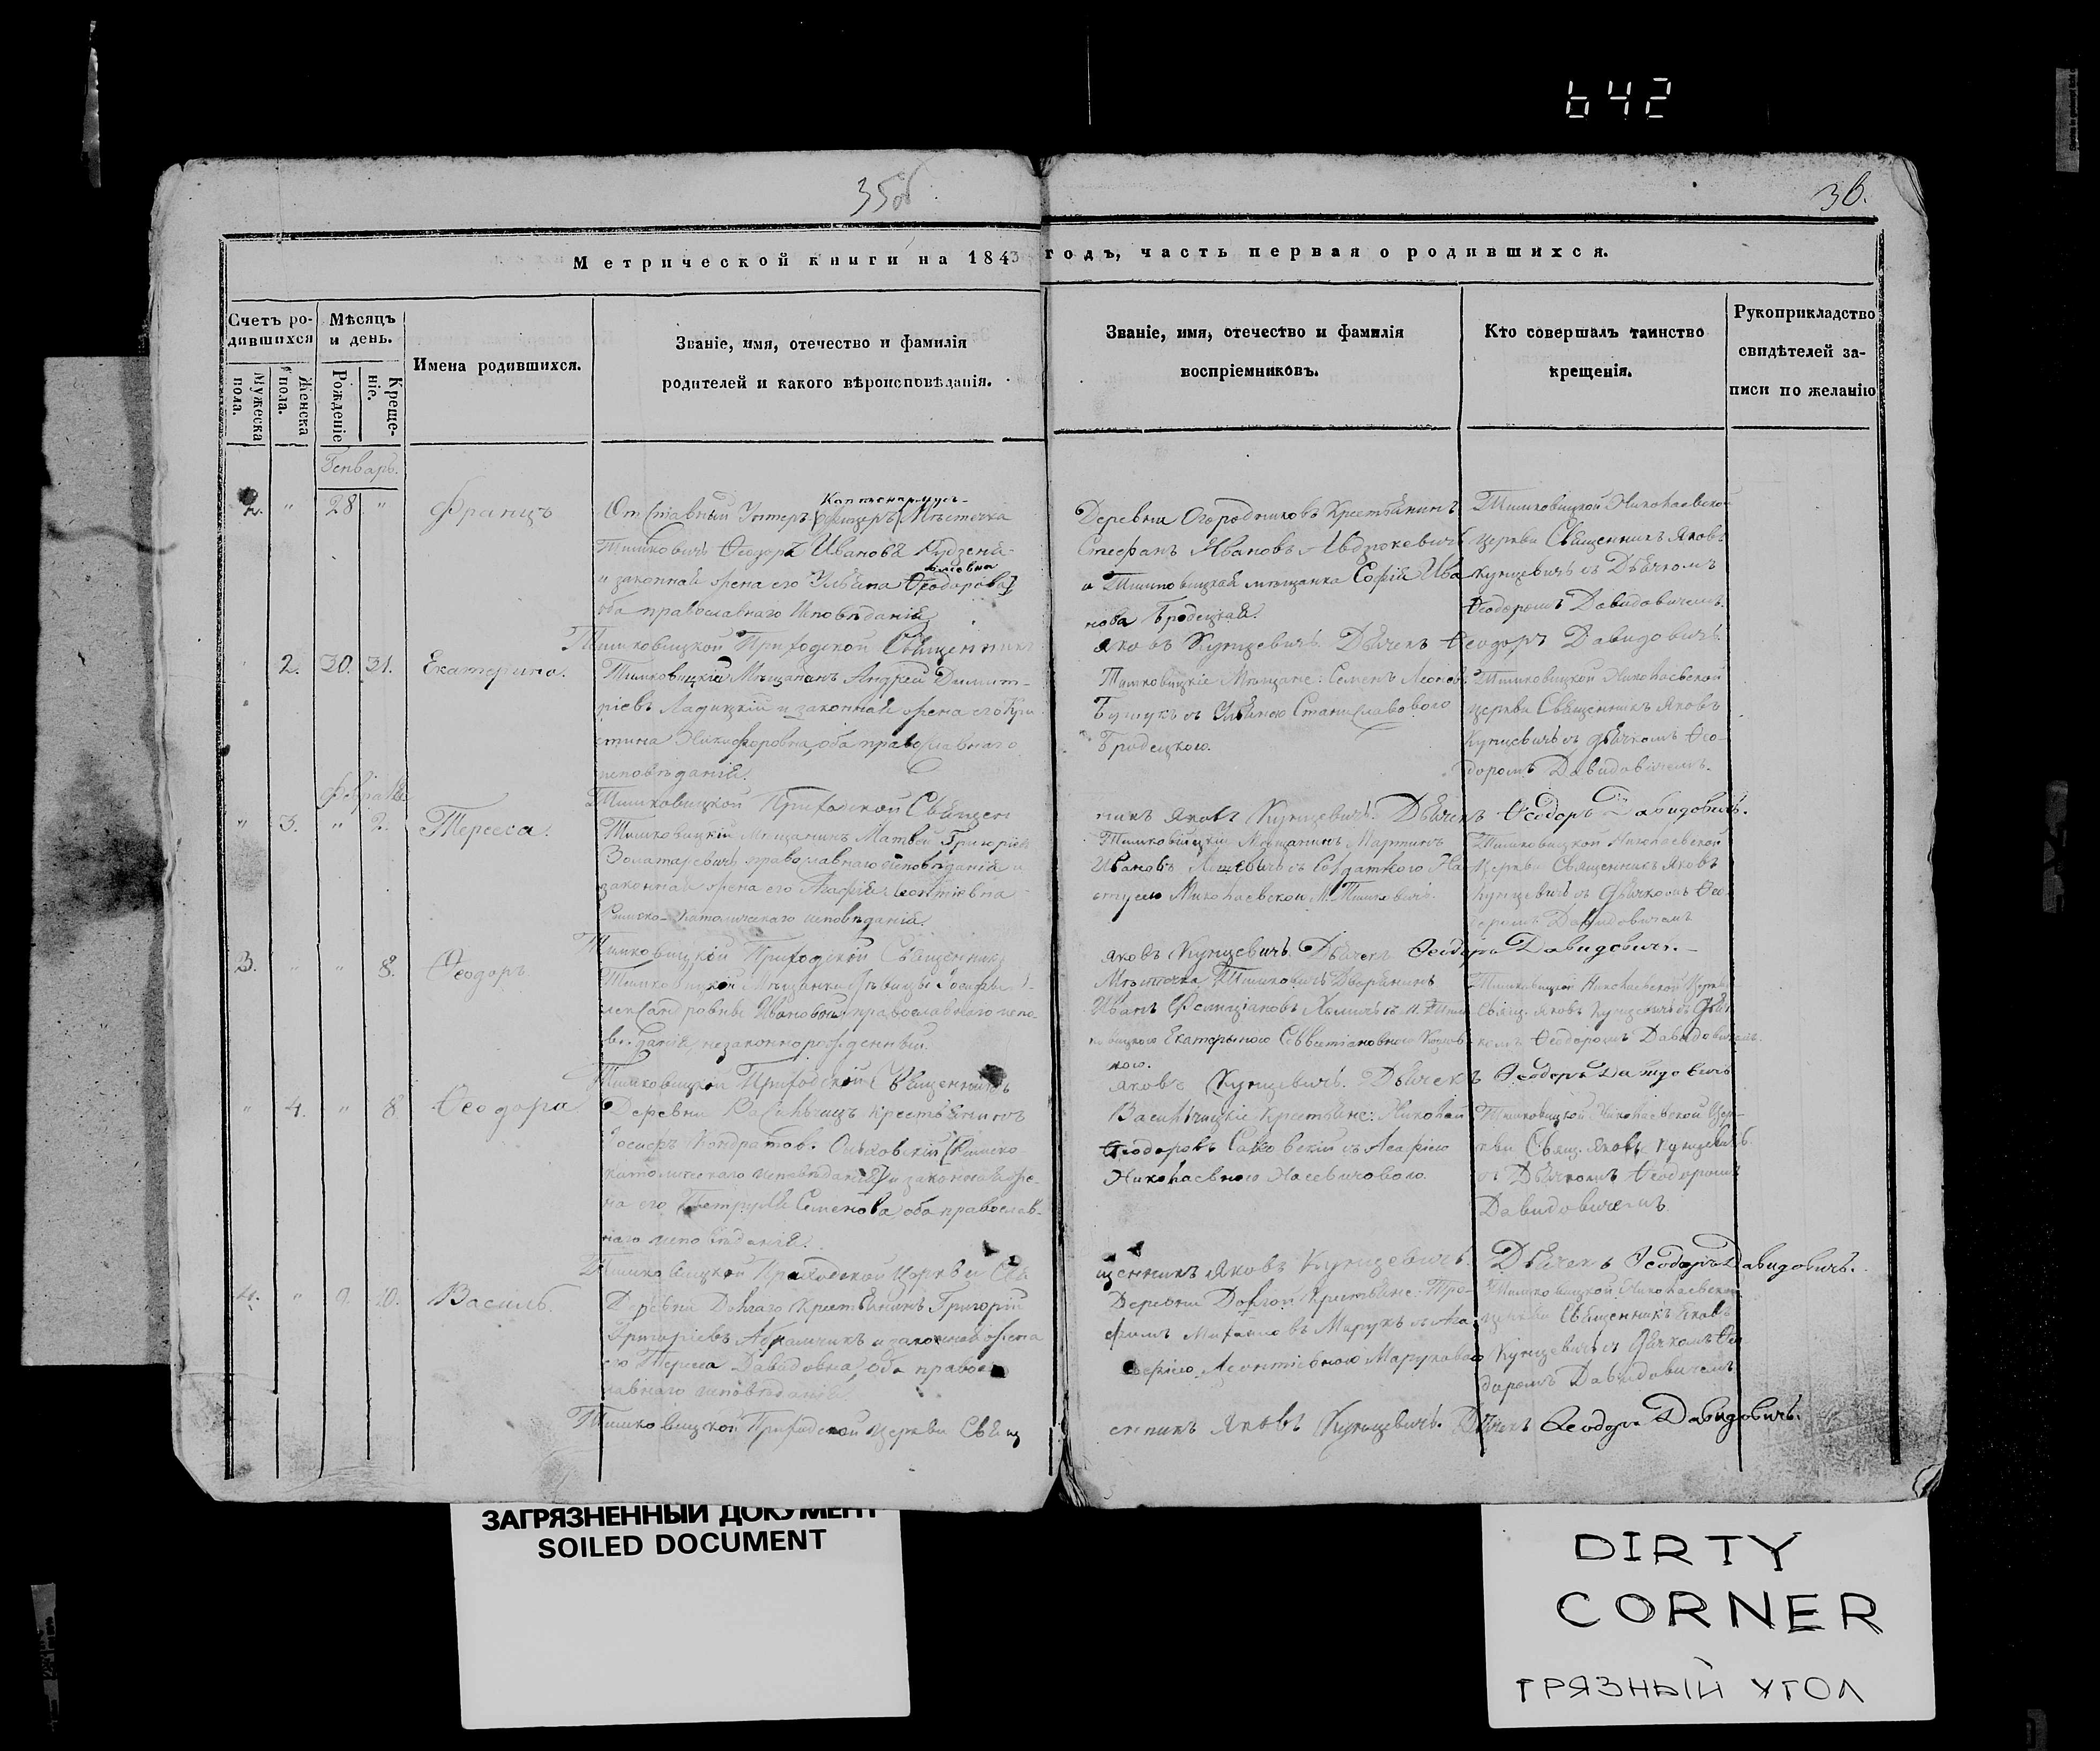 642
35об
36.
Метрической книги на 1843 годъ, часть первая о родившихся.
Счетъ ро-
дившихся
Мужеска
пола.
Женска
пола.
Мѣсяцъ
и день.
Рожденіе
Креще-
ніе.
Имена родившихся.
Званіе, имя, отечество и фамилія
родителей и какого вѣроисповѣданія.
Званіе, имя, отечество и фамилія
воспріемниковъ.
Кто совершалъ таинство
крещенія.
Рукоприкладство
свидѣтелей за-
писи по желанію
Генварь.
2. " 28 "
Францъ
Отставный Унтеръ Мѣстечка
Тимковичъ Ѳеодоръ Ивановъ
и законная жена его Ульяна Ѳеодорова
оба православнаго исповѣданія
Деревни Огородниковъ Крестьянинъ
Стефанъ Ивановъ
и Тимковицкая мѣщанка Софія Ива
нова Бродецкая.
Тимковицкой Николаевской
церкви Священникъ Яковъ
Кунцевичъ съ Дьячкомъ
Ѳеодоромъ Давидовичемъ.
Тимковицкой Приходской Священникъ Яковъ Кунцевичъ. Дьячекъ Ѳеодоръ Давидовичъ.
2. 30. 31.
Екатерина.
Тимковицкій Мѣщанинъ Андрей Димит-
ріевъ Ладицкій и законная жена его Кри
стина Никифоровна, оба православнаго
исповѣданія.
Тимковицкіе Мѣщане: Семенъ Леоновъ
съ Ульяною Станиславовою
Бродецкою.
Тимковицкой Николаевской
церкви Священникъ Яковъ
Кунцевичъ съ дьячкомъ Ѳео-
доромъ Давидовичемъ.
Тимковицкой Приходской Священ
никъ Яковъ Кунцевичъ. Дьячекъ Ѳеодоръ Давидовичъ.
Февраль
" 3. " 2.
Тереса.
Тимковицкій Мѣщанинъ Матвей Григоріевъ
Золатаревичъ православнаго исповѣданія и
законная жена его Леонтіевна
Римско-Католическаго исповѣданія.
Тимковицкій Мѣщанинъ Мартинъ
Ивановъ съ Солдаткою На
стусею Николаевской М. Тимковичъ.
Тимковицкой Николаевской
Церкви Священникъ Яковъ
Кунцевичъ съ Дьячкомъ Ѳео
доромъ Давидовичемъ
Тимковицкой Приходской Священникъ
Яковъ Кунцевичъ. Дьячекъ Ѳеодоръ Давидовичъ.
3. " " 8.
Ѳеодоръ.
Тимковицкой Мѣщанки Дѣвицы
Ивановны православнаго испо-
вѣданія, незаконнорожденный.
Мѣстечка Тимковичъ Дворянинъ
Иванъ
Екатериною
кою.
Тимковицкой Николаевской Церкви
Свящ. Яковъ Кунцевичъ съ Дьяч
комъ Ѳеодоромъ Давидовичемъ.
Тимковицкой Приходской Священникъ
Яковъ Кунцевичъ. Дьячекъ Ѳеодоръ Давидовичъ
" 4. " 8
Ѳеодора
Деревни Васильчицъ крестьянинъ
Іосифъ Кондратов. Римско
католическаго исповѣданія и законная же-
на его Петруля Семенова оба православ-
наго исповѣданія.
Васильчицкіе Крестьяне: Николай
Ѳеодоровъ съ Агафіею
Николаевною
Тимковицкой Николаевской Цер-
кви Свящ. Яковъ Кунцевичъ
съ Дьячкомъ Ѳеодоромъ
Давидовичемъ.
Тимковицкой Приходской Церкви Свя
щенникъ Яковъ Кунцевичъ. Дьячекъ Ѳеодоръ Давидовичъ.
4. " 9. 10.
Василь.
Деревни Долгаго Крестьянинъ Григорій
Григоріевъ Абрамчикъ и законная жена
его Тереса Давидовна, оба правос
лавнаго исповѣданія.
Деревни Долгой Крестьяне: Тро-
фимъ Михайловъ Марукъ съ Ага
Леонтіевною Маруковою
Тимковицкой Николаевской
церкви Священникъ Яковъ
Кунцевичъ съ Дьячкомъ Ѳео
доромъ Давидовичемъ
Тимковицкой Приходской церкви Свящ
енникъ Яковъ Кунцевичъ. Дьячекъ Ѳеодоръ Давидовичъ.
ЗАГРЯЗНЕННЫЙ ДОКУМЕНТ
SOILED DOCUMENT
DIRTY
CORNER
ГРЯЗНЫЙ УГОЛ